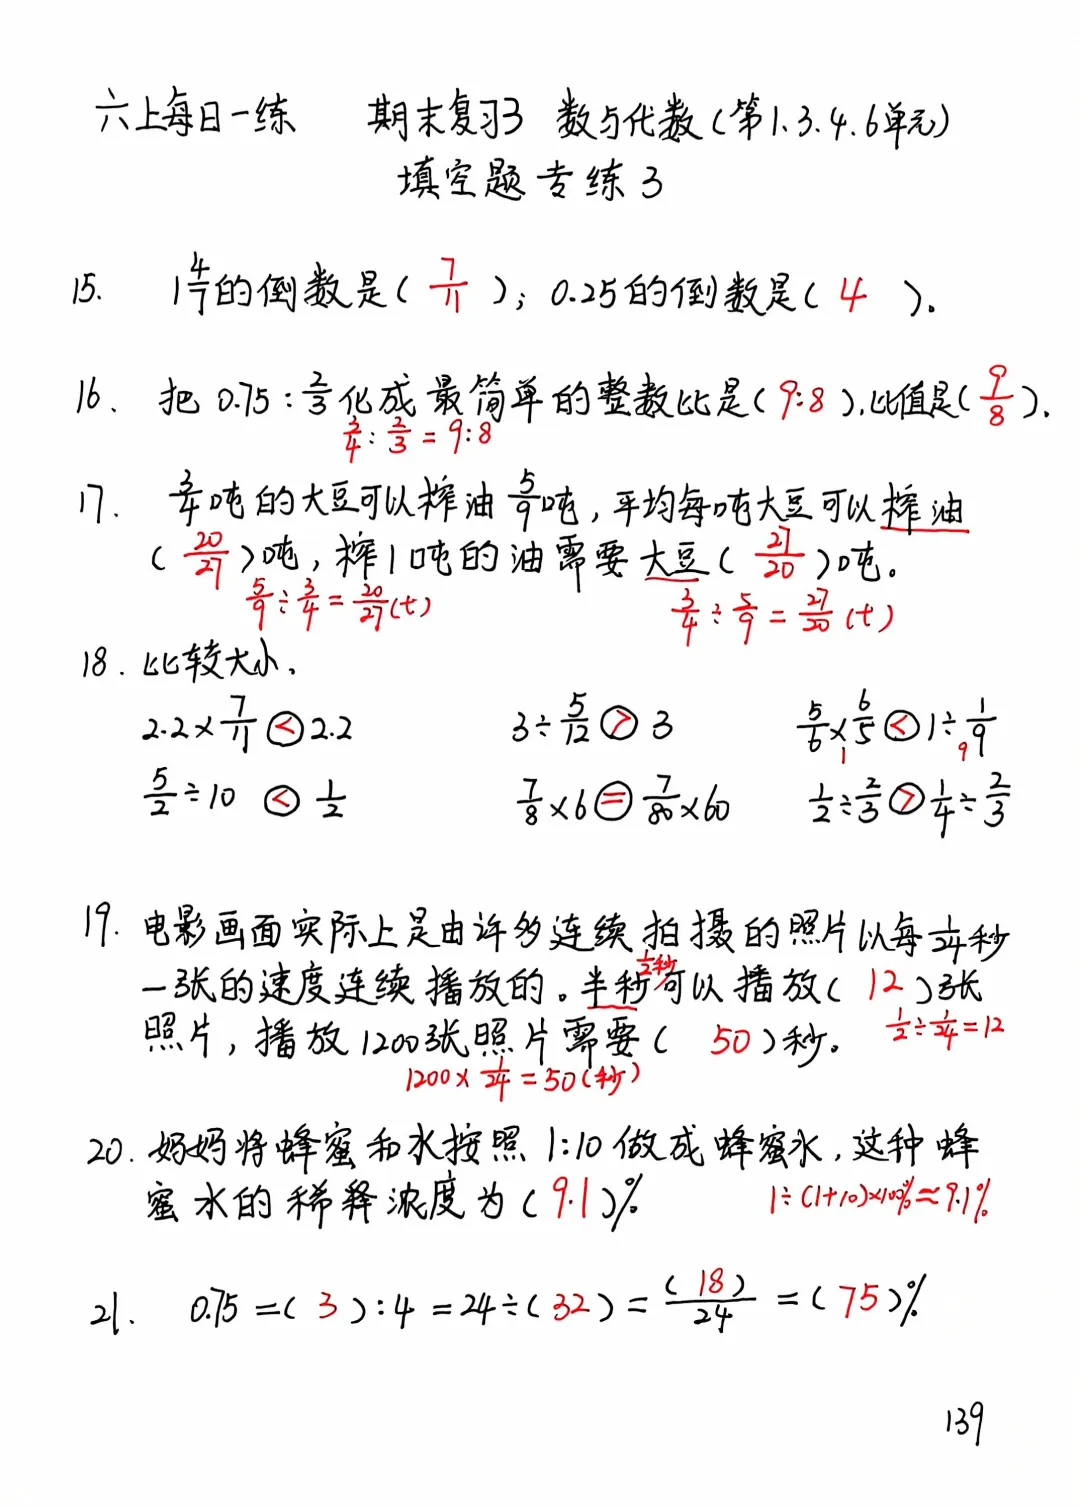 六上每日一练 期末复习3 数与代数(第1.3.4.6单元)
填空题专练3
15. 1 4/7的倒数是( 7/11 ); 0.25的倒数是( 4 ).
16. 把 0.75 : 2/3化成最简单的整数比是(9:8),比值是(9/8).
3/4 : 2/3 = 9:8
17. 3/4吨的大豆可以榨油5/9吨,平均每吨大豆可以榨油
(20/27)吨,榨1吨的油需要大豆(27/20)吨。
5/9÷3/4=20/27(t) 3/4÷5/9=27/20(t)
18. 比较大小.
2.2×7/11 < 2.2 3÷5/12 > 3 5/6×6/5 < 1÷1/9
1 9
5/2÷10 < 1/2 7/8×6 = 7/80×60 1/2÷2/3 > 1/4÷2/3
19. 电影画面实际上是由许多连续拍摄的照片以每1/24秒
1/2秒
一张的速度连续播放的。半秒可以播放( 12 )张
照片,播放1200张照片需要( 50 )秒. 1/2÷1/24=12
1200×1/24=50(秒)
20. 妈妈将蜂蜜和水按照1:10做成蜂蜜水,这种蜂
蜜水的稀释浓度为(9.1)% 1÷(1+10)×100%≈9.1%
21. 0.75=( 3 ):4=24÷(32)=(18)/24=(75)%
139